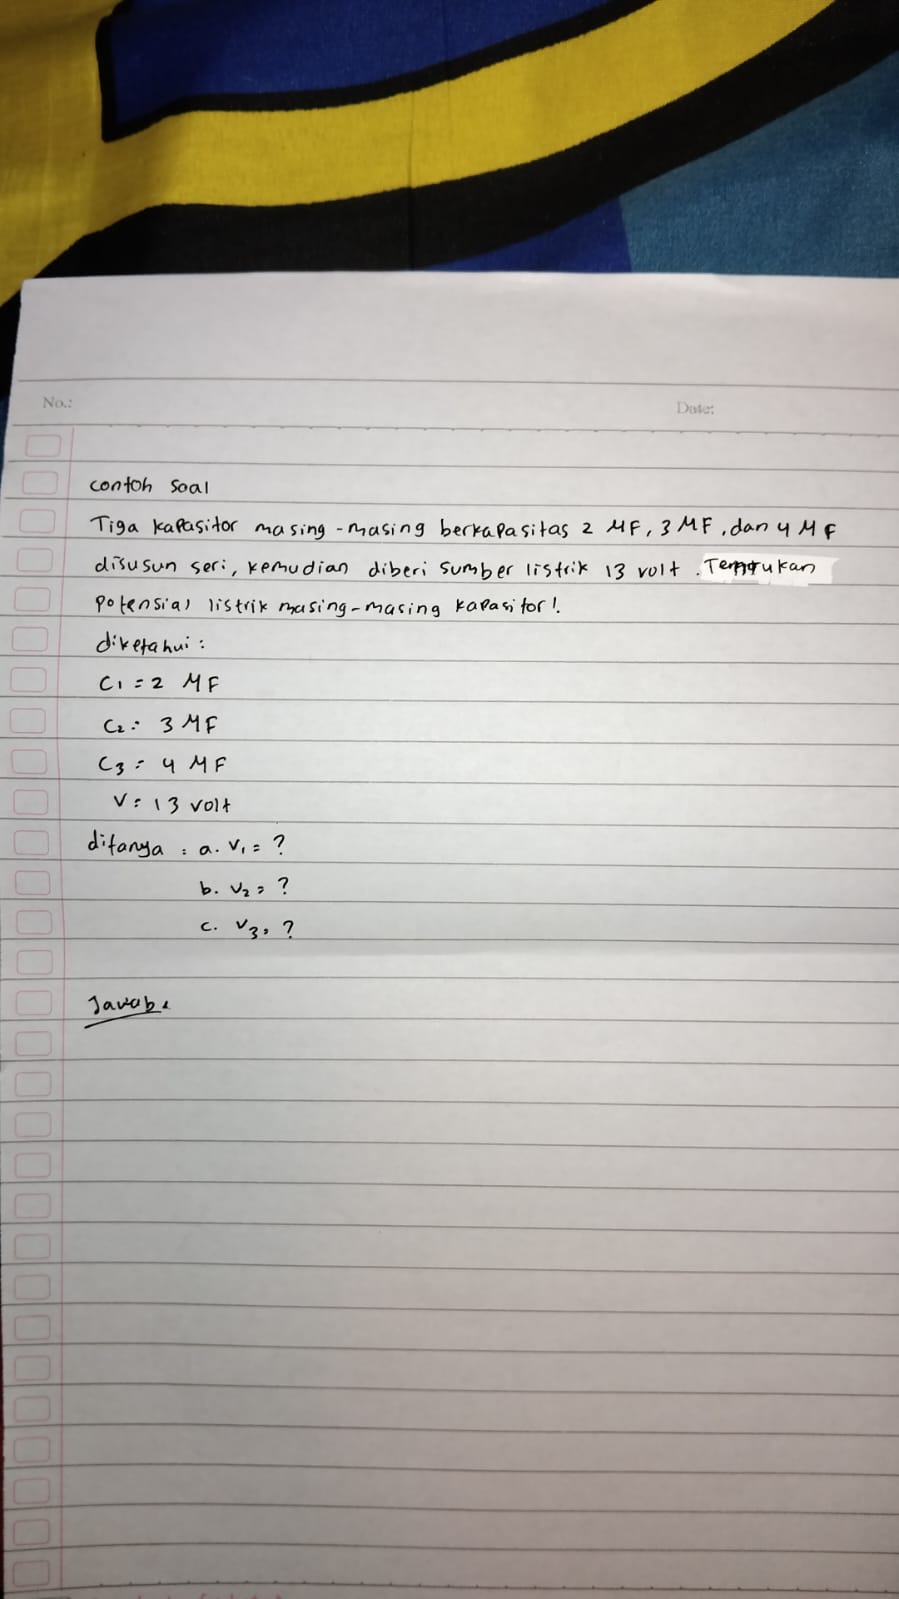 No.:
Date:
contoh soal
Tiga kapasitor masing-masing berkapasitas 2 MF, 3 MF, dan 4 MF
disusun seri, kemudian diberi sumber listrik 13 volt.
potensial listrik masing-masing kapasitor!
diketahui:
C1 = 2 MF
C2 = 3 MF
C3 = 4 MF
V = 13 volt
ditanya : a. V1 = ?
b. V2 = ?
c. V3 = ?
Jawab: